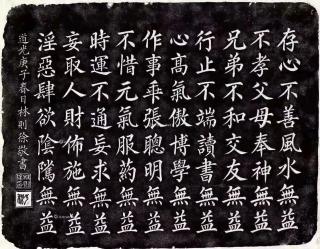 存心不善風水無益
不孝父母奉神無益
兄弟不和交友無益
行止不端讀書無益
心髙氣傲博學無益
作事乖張聰明無益
不惜元氣服葯無益
時運不通妄求無益
妄取人財佈施無益
淫惡肆欲陰騭無益
道光庚子春日林則徐敬書